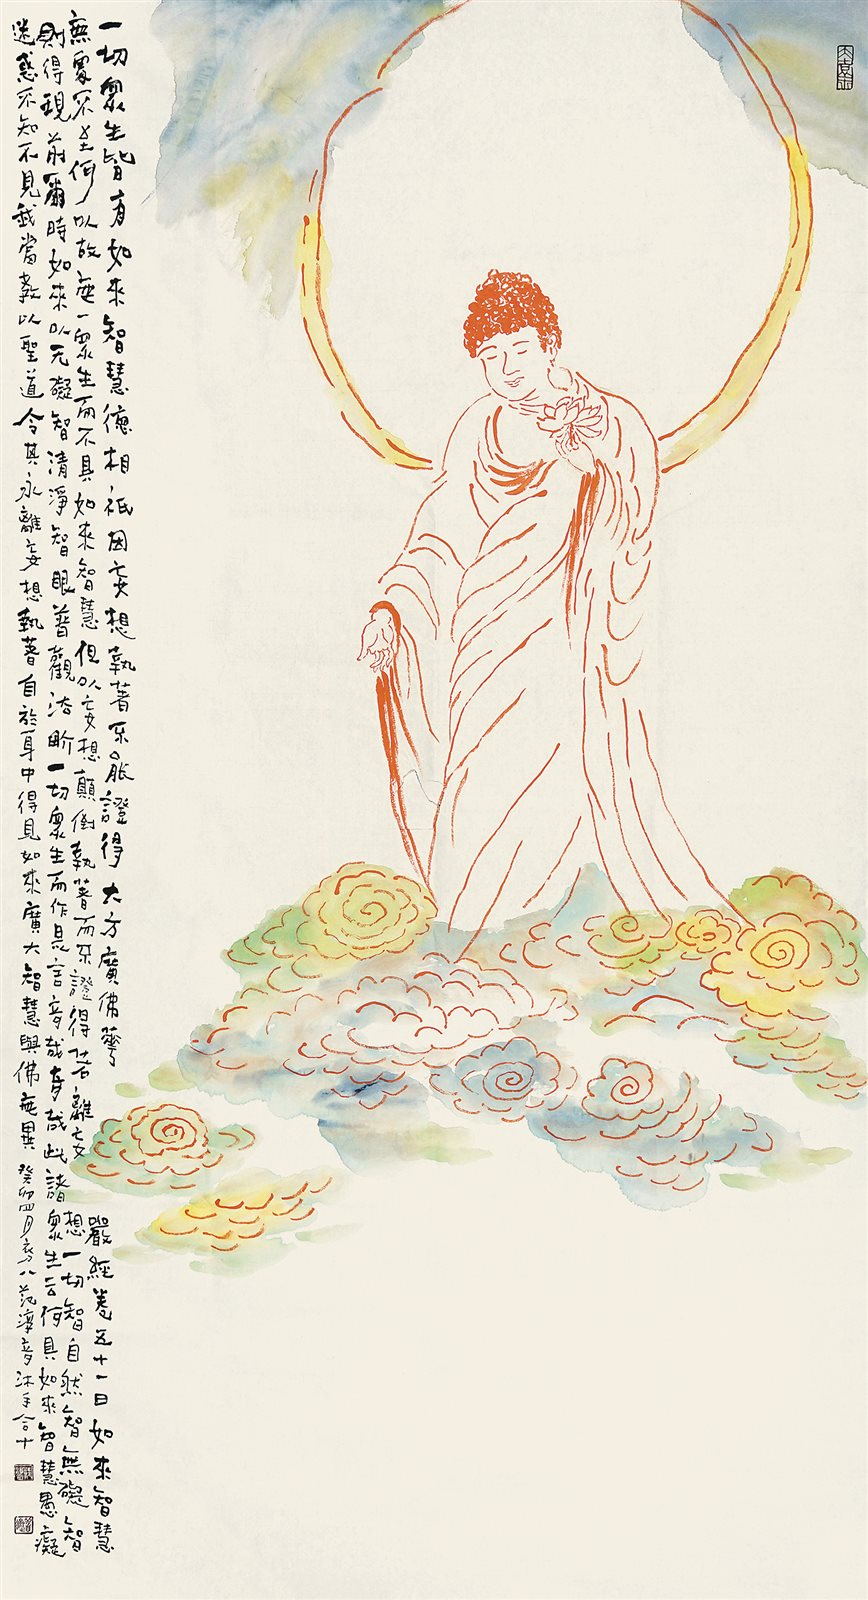 一切眾生皆有如來智慧德相祇因妄想執著不能證得 大方廣佛華嚴經卷五十一曰如來智慧
無處不至何以故無一眾生而不具如來智慧但以妄想顛倒執著而不證得若離妄想一切智自然智無礙智
則得現前爾時如來以无礙智清淨智眼普觀法界一切眾生而作是言奇哉奇哉此諸眾生云何具如來智慧愚癡
迷惑不知不見我當教以聖道令其永離妄想執著自於身中得見如來廣大智慧與佛無異 癸卯四月初八范音沐手合十